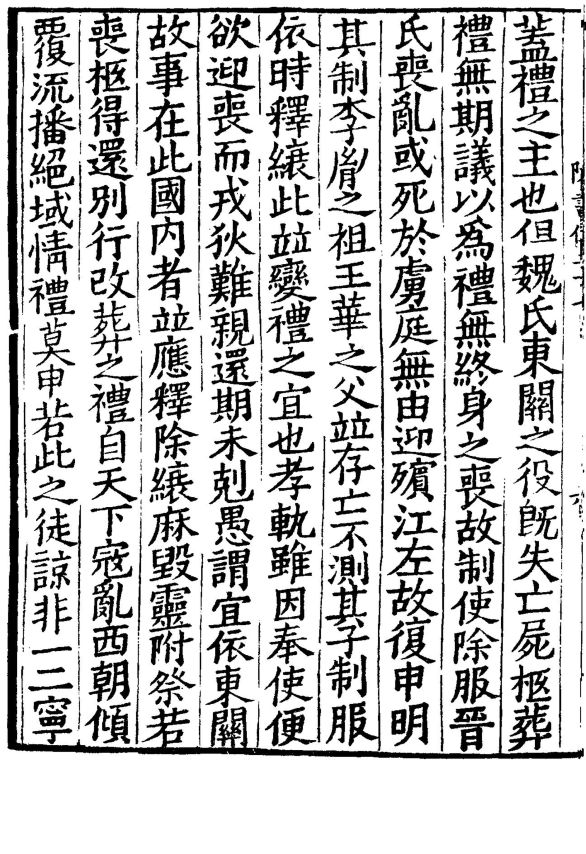 蓋禮之主也但魏氏東關之役旣失亡屍柩葬
禮無期議以爲禮無終身之喪故制使除服晉
氏喪亂或死於虜庭無由迎殯江左故復申明
其制李胤之祖王華之父並存亡不測其子制服
依時釋縗此並變禮之宜也孝軌雖因奉使便
欲迎喪而戎狄難親還期未剋愚謂宜依東關
故事在此國內者並應釋除縗麻毀靈附祭若
喪柩得還別行改葬之禮自天下寇亂西朝傾
覆流播絕域情禮莫申若此之徒諒非一二寧